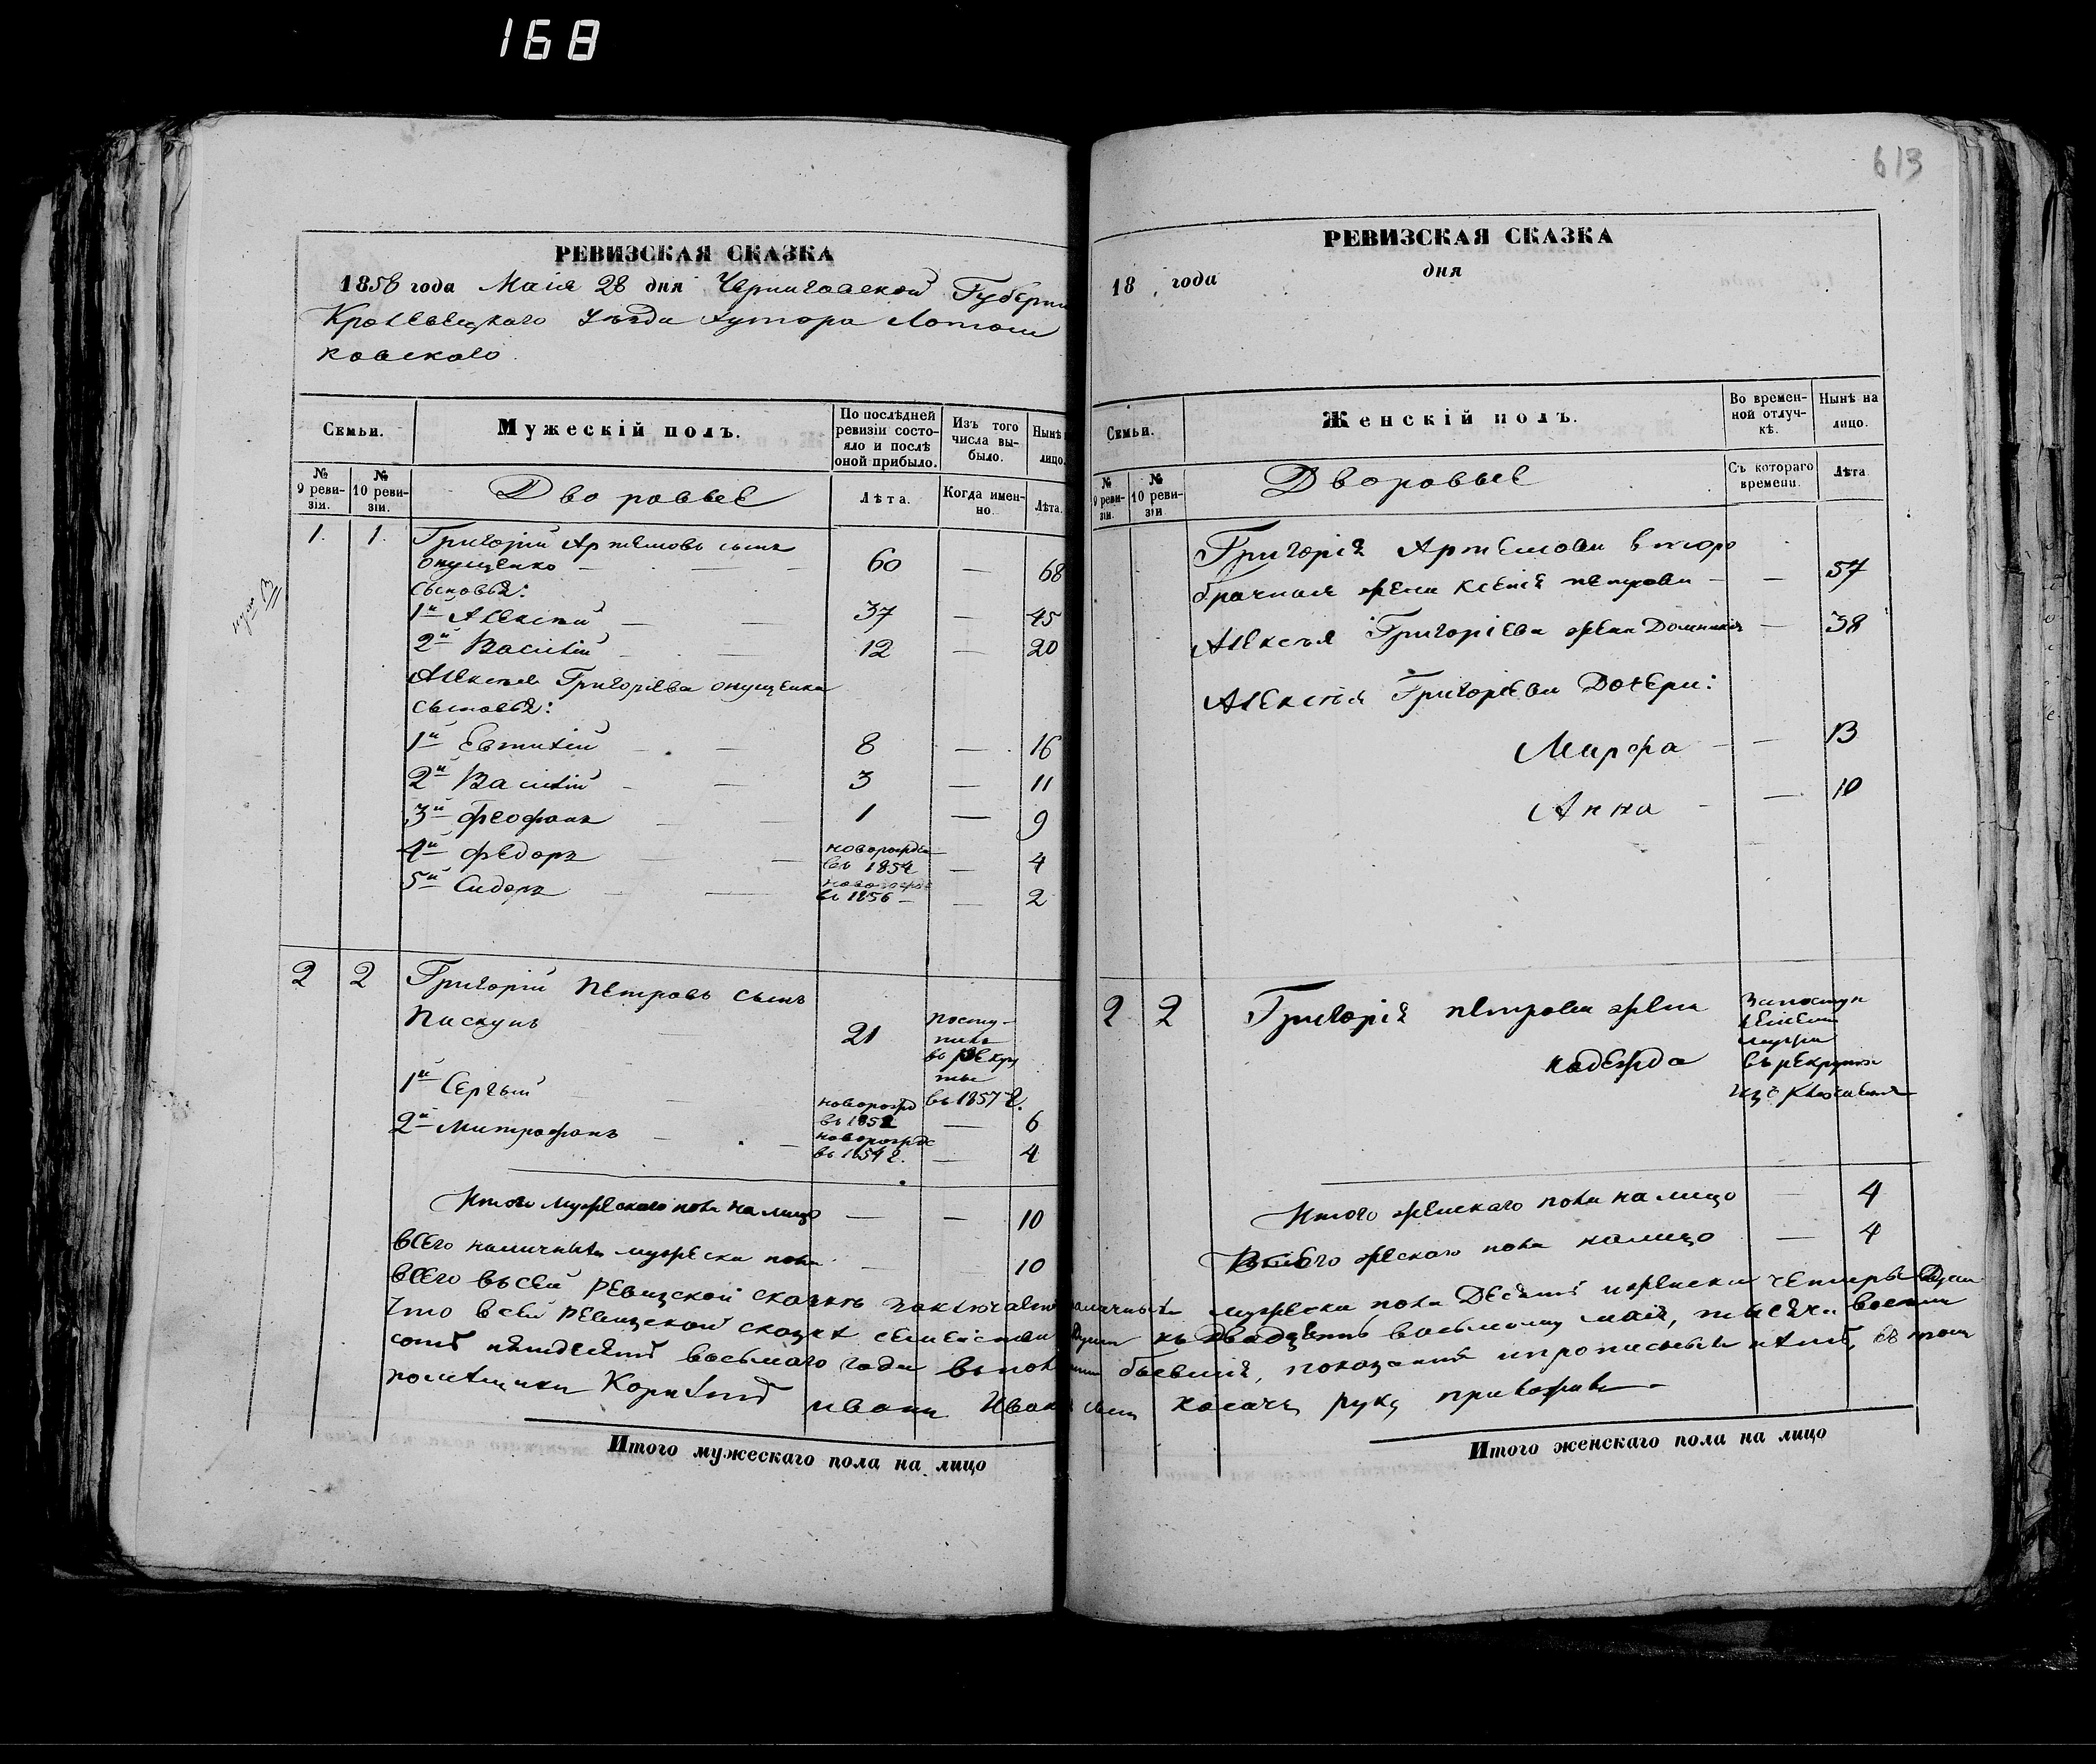 168
613
РЕВИЗСКАЯ СКАЗКА
1858 года Маія 28 дня Черниговской Губерни
Кролевецкаго Уезда хутора Лотош
ковскаго.
Семьи.
Мужескій полъ.
По послѣдней ревизіи состояло и послѣ оной прибыло.
Изъ того числа выбыло.
Нынѣ
лицо.
№ 9 ревизіи.
№ 10 ревизіи.
Дворовые
Лѣта.
Когда именно.
Лѣта.
1. 1. Григорій Артемовъ сынъ
Онущенко 60 — 68
Сыновья:
1й Алексѣй — 37 — 45
2й Василій — 12 — 20
Алексѣя Григорiева Онущенка
Сыновья:
1й Евтихій — 8 — 16
2й Василій — 3 — 11
3й Феофанъ — 1 — 9
4й Федоръ — новорожде
въ 1854 — 4
5й Сидоръ — новорожде
въ 1856 — 2
2 2 Григорій Петровъ сынъ
Паскунъ 21 посту-
пилъ
въ рекру
ты
въ 1857 г.
1й Сергѣй новорожд
въ 1852 — 6
2й Митрофанъ — новорожде
въ 1854 г. — 4
Итого мужескаго пола на лицо — — 10
Всего наличныхъ мужеска пола — — 10
РЕВИЗСКАЯ СКАЗКА
18 года
дня
Семьи.
Женскій полъ.
Во временной отлучкѣ.
Нынѣ на лицо.
№ 9 ревизіи.
№ 10 ревизіи
Дворовые
Съ котораго времени.
Лѣта
Григорія Артемова второ
брачная жена Ксенія Петрова — — 57
Алексѣя Григоріева жена Домникія — 38
Алексѣя Григоріева Дочери:
Марфа — — 13
Анна — — 10
2 2 Григорія Петрова жена
Надежда
мужа
въ рекруты
Итого женскаго пола на лицо — 4
Всего женскаго пола налицо — 4
Всего въ сей ревизской сказкѣ заключается наличныхъ мужеска пола Десять и женска четыре Души
Что в сей ревизской сказкѣ всѣ души къ двадцать восьмому маія, тысяча восемь
сотъ пятдесятъ восьмаго года бывшія, показаны и прописныхъ нѣтъ, въ томъ
помѣщика Корнѣтъ Иванъ Ивановъ сынъ Косачъ руку приложилъ
Итого мужескаго пола на лицо
Итого женскаго пола на лицо